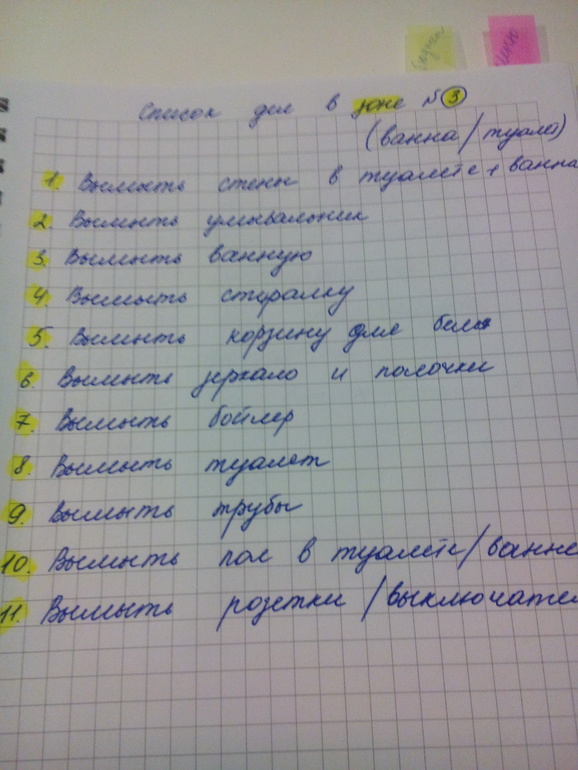 Список дел в зоне №3
(ванна/туалет)
1. Вымыть стены в туалете + ванна
2. Вымыть умывальник
3. Вымыть ванную
4. Вымыть стиралку
5. Вымыть корзину для белья
6. Вымыть зеркало и полочки
7. Вымыть бойлер
8. Вымыть туалет
9. Вымыть трубы
10. Вымыть пол в туалете/ванне
11. Вымыть розетки/выключател